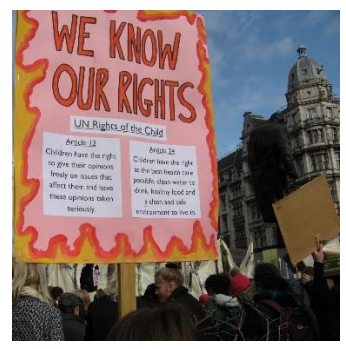 WE KNOW
OUR RIGHTS
UN Rights of the Child
Article 12
Children have the right
to give their opinions
freely on issues that
affect them and have
these opinions taken
seriously.
Article 24
Children have the right
to the best health care
possible, clean water to
drink, healthy food and
a clean and safe
environment to live in.